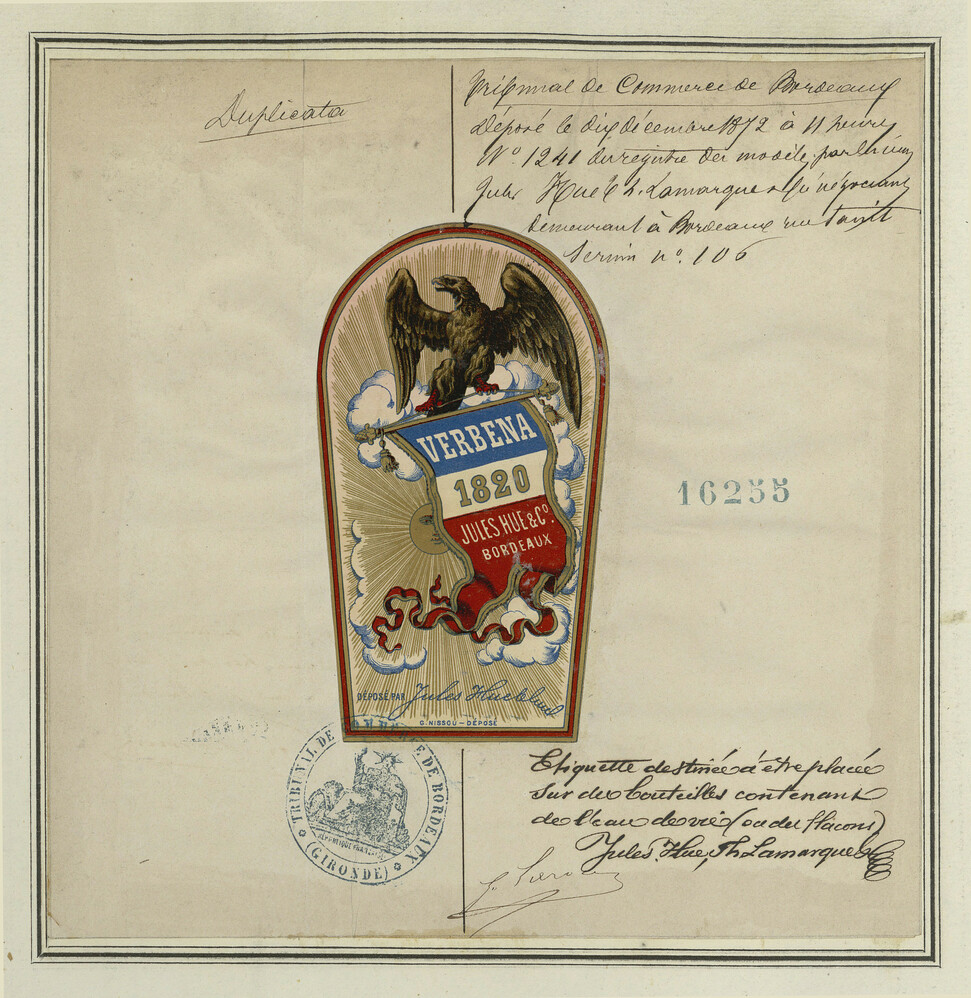 Duplicata
Tribunal de Commerce de Bordeaux
Déposé le dix décembre 1872 à 11 heures
N° 1241 du registre des modèles, par
Jules Hue & Th. Lamarque négociant
demeurant à Bordeaux rue
n° 106
VERBENA
1820
JULES HUE & Cº.
BORDEAUX
16255
DÉPOSÉ PAR Jules Hue
G. NISSOU – DÉPOSÉ
TRIBUNAL DE COMMERCE DE BORDEAUX
RÉPUBLIQUE FRANÇAISE
(GIRONDE)
Etiquette destinée à être placée
sur des bouteilles contenant
de l'eau de vie (ou des flacons)
Jules Hue, Th Lamarque &